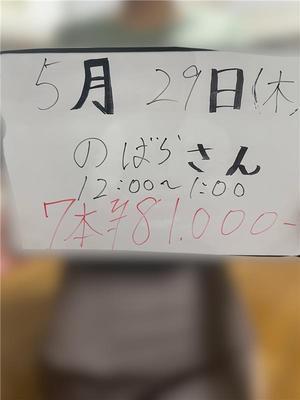 5月 29日(木)
のばらさん
12:00～1:00
7本¥81.000-